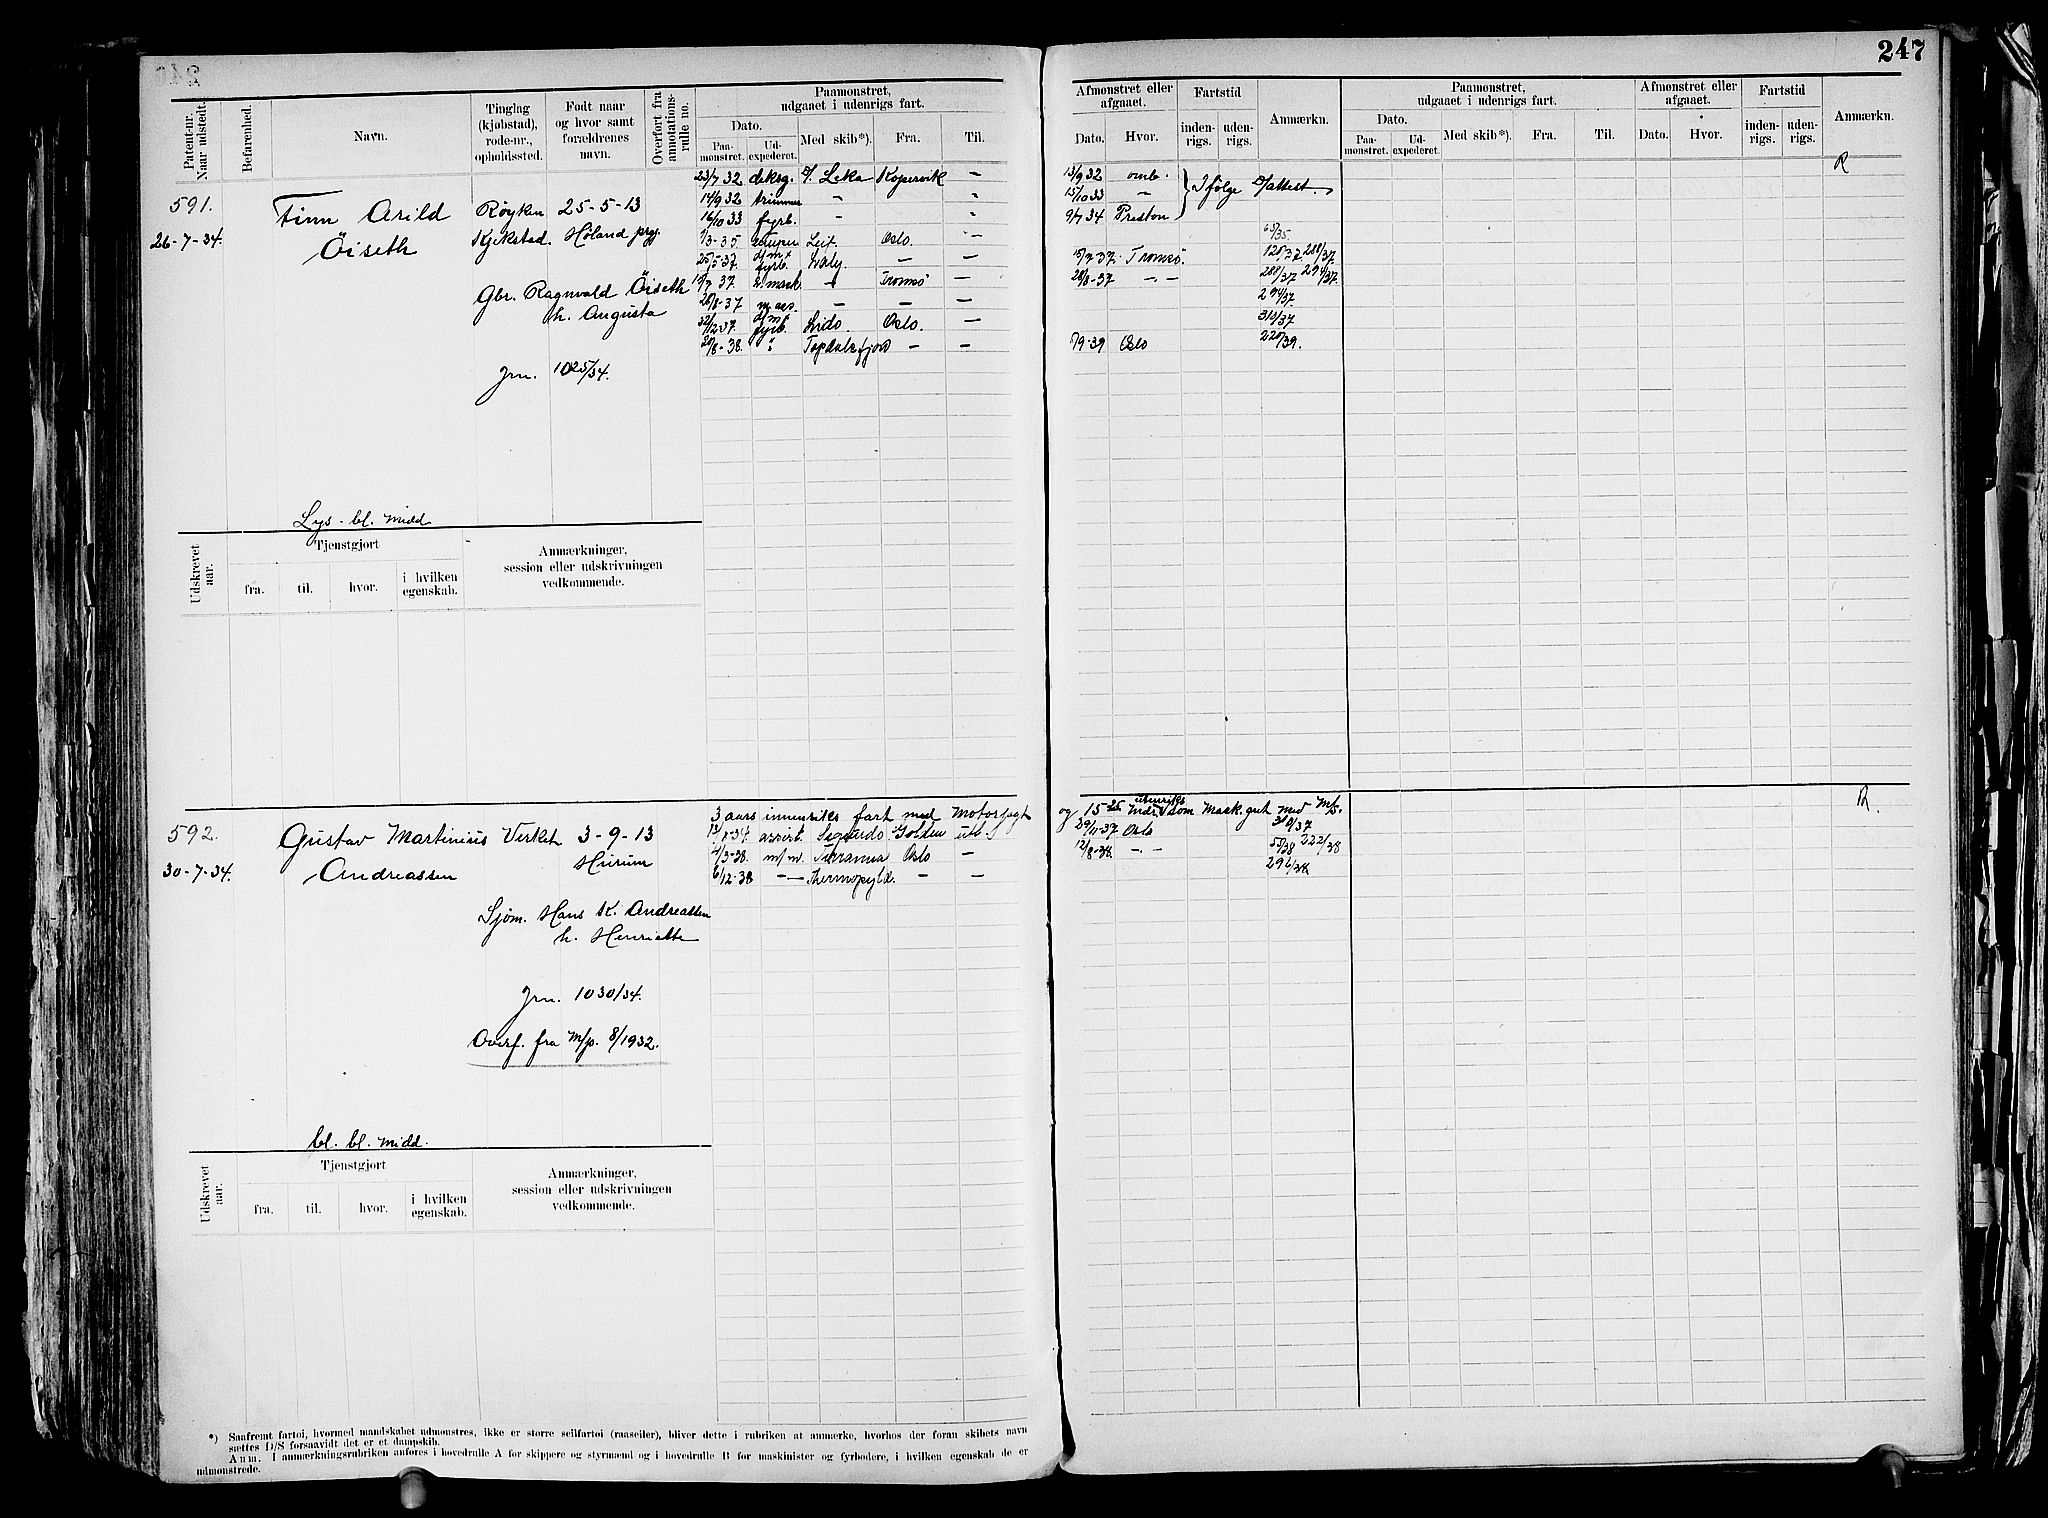 247
Patent-nr. Naar udstedt.
Befarenhed.
Navn.
Tinglag (kjøbstad), rode-nr., opholdssted.
Født naar og hvor samt forældrenes navn.
Overført fra annotationsrulle no.
Paamonstret, udgaaet i udenrigs fart.
Dato.
Paamonstret.
Udexpederet.
Med skib*).
Fra.
Til.
Afmonstret eller afgaaet.
Dato.
Hvor.
Fartstid
indenrigs.
udenrigs.
Anmærkn.
Paamonstret, udgaaet i udenrigs fart.
Dato.
Paamonstret.
Udexpederet.
Med skib*).
Fra.
Til.
Afmonstret eller afgaaet.
Dato.
Hvor.
Fartstid
indenrigs.
udenrigs.
Anmærkn.
R
591.
26-7-34.
Finn Arild
Öiseth
Røyken 25-5-13
Kjekstad. Høland prgj.
Gbr. Ragnvald Öiseth
h. Augusta
Jrn. 1025/34.
23/7 32 deksg. D/. Leka Kopervik —
14/9 32 trimmer
16/10 33 fyrb.
/3-35 Leif. Oslo. —
25/5-37 fyrb. — —
37 Tromsø —
28/8-37 — — —
fyrb. Lido. Oslo. —
/8-38. Topdalsfjord — —
13/9 32 omb.
15/10 33 —
9/7 34 Preston
Ifølge D/attest.
65/35
15/7-37. Tromsø. 288/37.
28/8-37 —.— 288/37 294/37.
294/37
310/37
/9-39 Oslo 220/39.
Lys - bl. Midd
Udskrevet aar.
Tjenstgjort
fra.
til.
hvor.
i hvilken egenskab.
Anmærkninger, session eller udskrivningen vedkommende.
592.
30-7-34.
Gustav Martinius
Andreassen
Virket 3-9-13
Hurum
Sjøm. Hans K. Andreassen
h. Henriette
Jrn. 1030/34.
Overf. fra M/p. 8/1932.
3 aars innenriks fart med Motorjagt
assist. Segundo. Golden
4/3-38. m/m. Tirranna Oslo —
6/12-38 —— Thermopylæ. — —
og 15 mdr. utenriks som Mask.gut med M/S.
29/11-37 Oslo 310/37
12/8-38. —.— 55/38 222/38
296/38
R.
bl. bl. Midd.
Udskrevet aar.
Tjenstgjort
fra.
til.
hvor.
i hvilken egenskab.
Anmærkninger, session eller udskrivningen vedkommende.
*) Saafremt fartøi, hvormed mandskabet udmonstres, ikke er større seilfartøi (raaseiler), bliver dette i rubriken at anmærke, hvorhos der foran skibets navn
sættes D/S forsaavidt det er et dampskib.
Anm. I anmærkningsrubriken anføres i hovedrulle A for skippere og styrmænd og i hovedrulle B for maskinister og fyrbødere, i hvilken egenskab de er
udmonstrede.